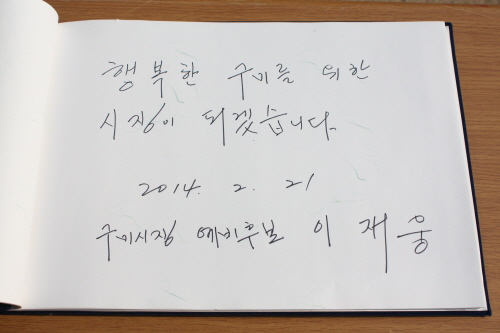 행복한 구미를 위한
시장이 되겠습니다.
2014. 2. 21
구미시장 예비후보 이재웅